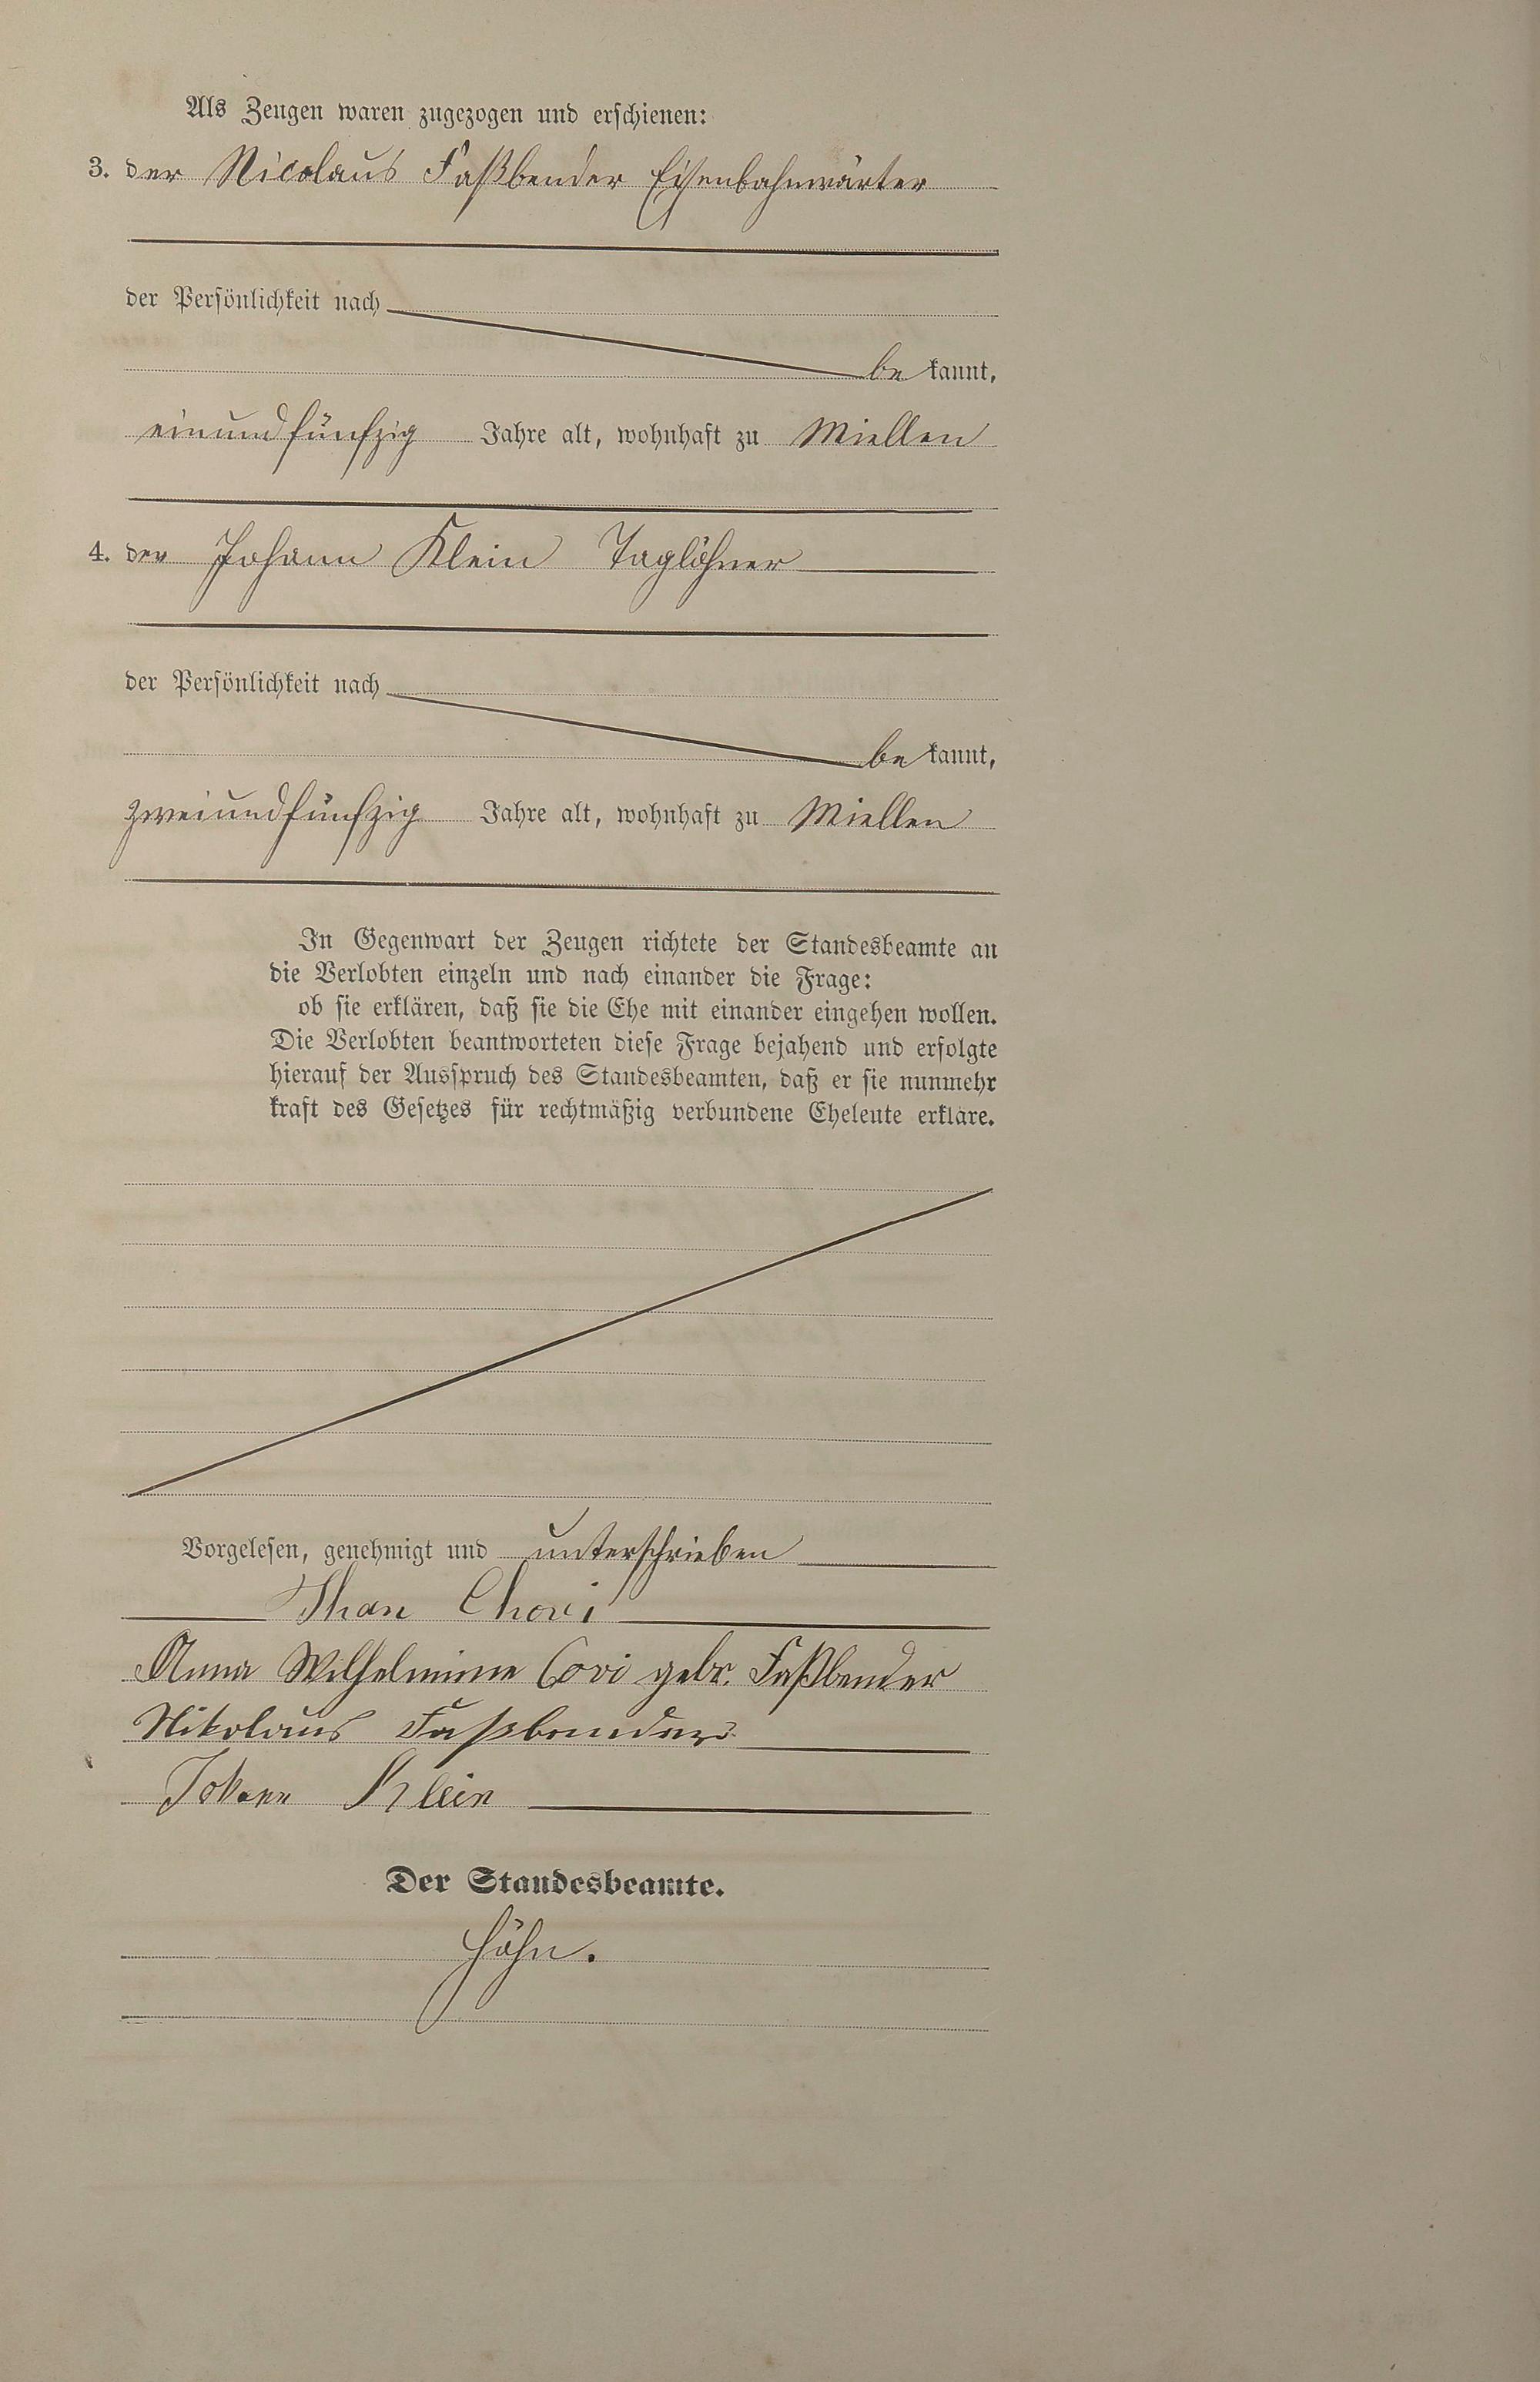 Als Zeugen waren zugezogen und erschienen:
3. der Nicolaus Faßbender Eisenbahnwärter
der Persönlichkeit nach
be kannt,
einundfünfzig Jahre alt, wohnhaft zu Miellen
4. der Johann Klein Taglöhner
der Persönlichkeit nach
be kannt,
zweiundfünfzig Jahre alt, wohnhaft zu Miellen
In Gegenwart der Zeugen richtete der Standesbeamte an
die Verlobten einzeln und nach einander die Frage:
ob sie erklären, daß sie die Ehe mit einander eingehen wollen.
Die Verlobten beantworteten diese Frage bejahend und erfolgte
hierauf der Ausspruch des Standesbeamten, daß er sie nunmehr
kraft des Gesetzes für rechtmäßig verbundene Eheleute erkläre.
Vorgelesen, genehmigt und unterschrieben
Anna Wilhelmine Covi gebr. Faßbender
Nikolaus Faßbender
Johann Klein
Der Standesbeamte.
Höhn.